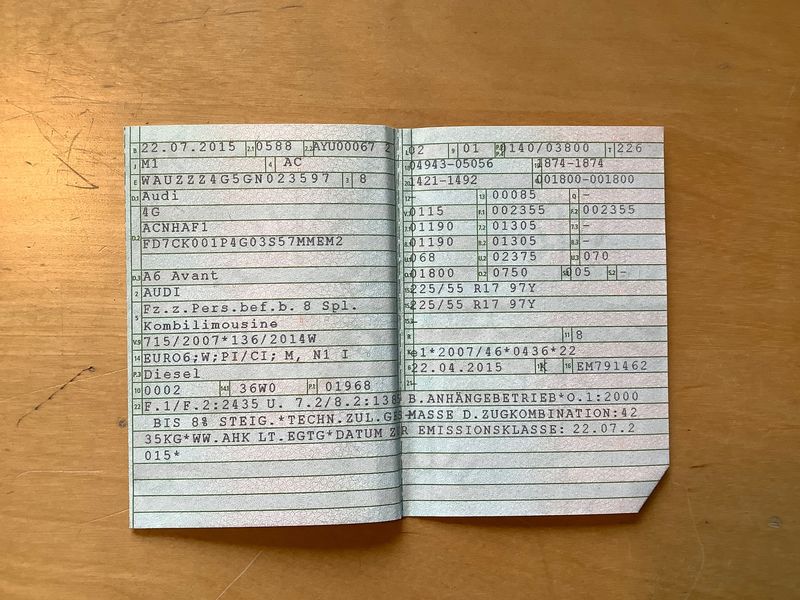 B 22.07.2015 2.1 0588 2.2 AYU00067 2
J M1 4 AC
E WAUZZZ4G5GN023597 3 8
D.1 Audi
4G
ACNHAF1
D.2 FD7CK001P4G03S57MMEM2
D.3 A6 Avant
2 AUDI
5 Fz.z.Pers.bef.b. 8 Spl.
Kombilimousine
V.9 715/2007*136/2014W
14 EURO6;W;PI/CI; M, N1 I
P.3 Diesel
10 0002 14.1 36W0 P.1 01968
22 F.1/F.2:2435 U. 7.2/8.2:1385 B.ANHÄNGEBETRIEB*O.1:2000
BIS 8% STEIG.*TECHN.ZUL.GES-MASSE D.ZUGKOMBINATION:42
35KG*WW.AHK LT.EGTG*DATUM ZUR EMISSIONSKLASSE: 22.07.2
015*
L 02 9 01 0140/03800 T 226
18 04943-05056 19 1874-1874
20 1421-1492 001800-001800
13 00085 Q -
V.7 0115 F.1 002355 F.2 002355
7.1 01190 7.2 01305 7.3 -
8.1 01190 8.2 01305 8.3 -
U.1 068 U.2 02375 U.3 070
O.1 01800 O.2 0750 S.1 005 S.2 -
15.1 225/55 R17 97Y
15.2 225/55 R17 97Y
15.3 -
R 11 8
K e1*2007/46*0436*22
6 22.04.2015 17 K 16 EM791462
21 -